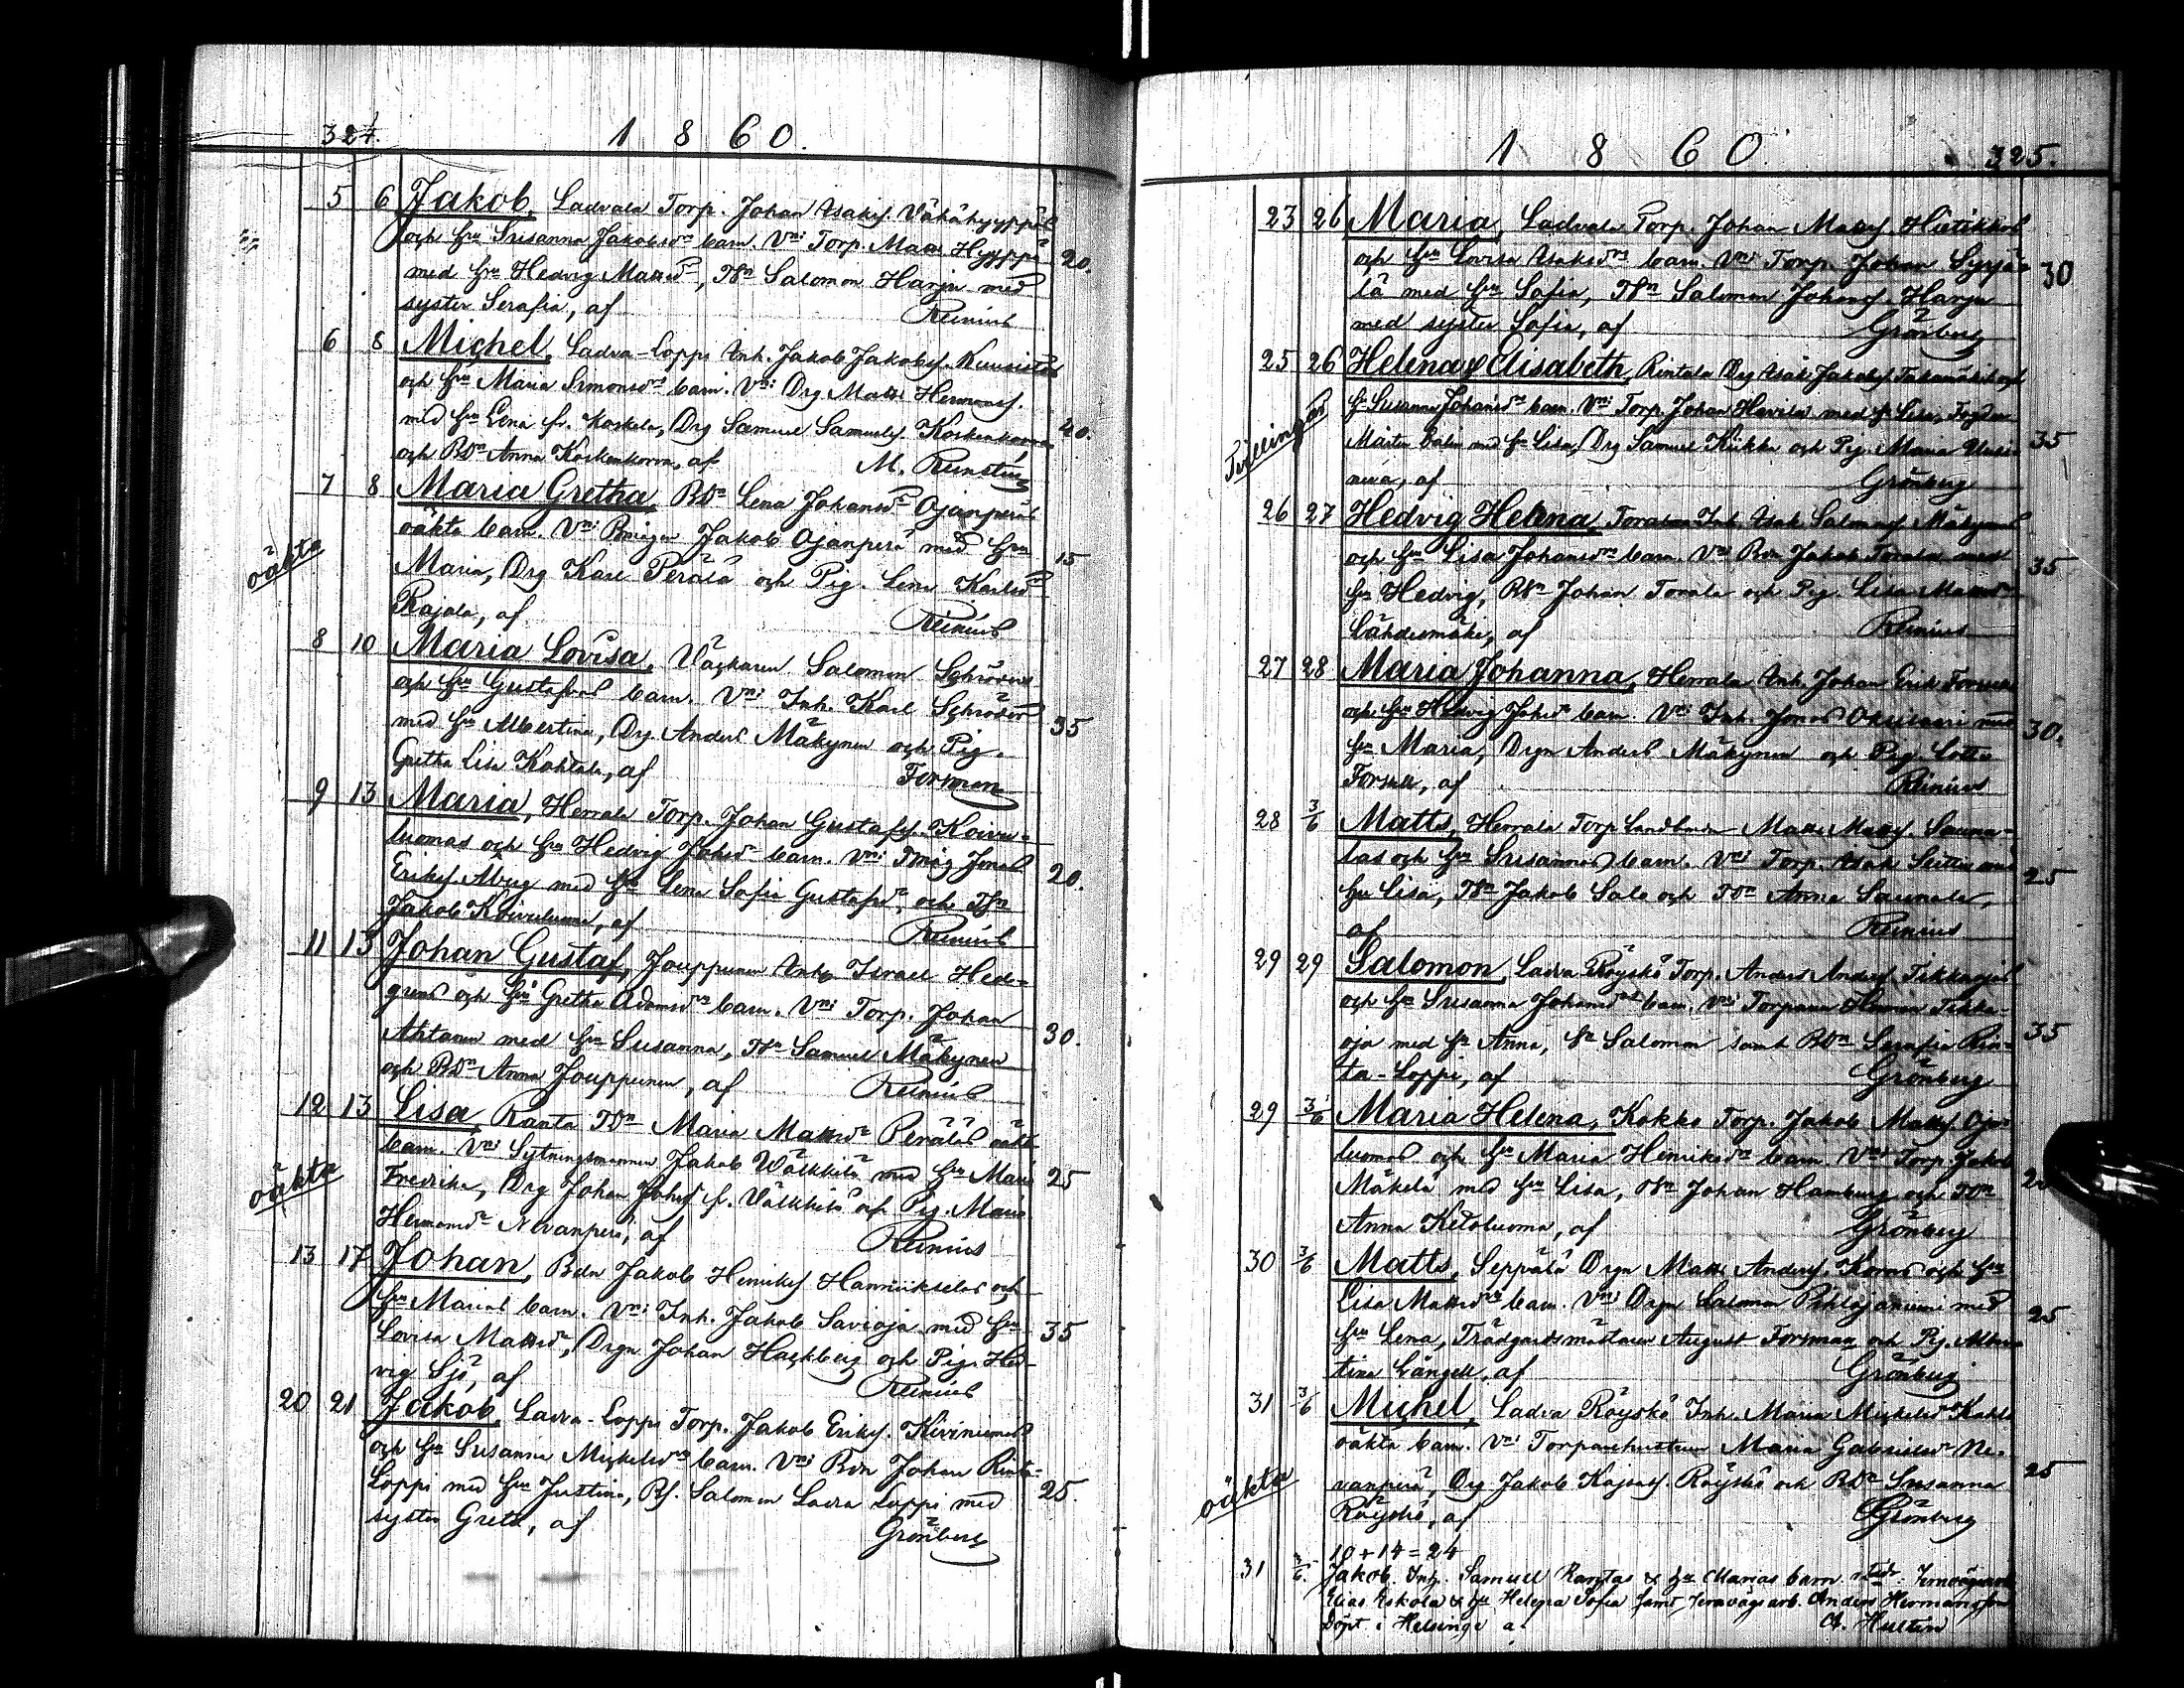 324.
1 8 6 0.
5 6 Jakob, Ladvala Torp. Johan Isaks. Vähähyyppäs
och hu Susanna Jakobsdrs barn. Vni Torp. Matts Hyyppä 20.
med hu Hedvig Mattsd, Tsn Salomon Harju med
syster Serafia, af Reinius
6 8 Michel, Ladva-Loppi Inh. Jakob Jakobs. Kuusistos
och hu Maria Simonsdrs barn. Vni Drg Matts Hermans.
med hu Lena fr. Koskela, Drg Samuel Samuels. Koskenkorva 40.
och BDr Anna Koskenkorva, af M. Rein
7 8 Maria Gretha, BDr Lena Johansdr Ojanperäs
oäkta
oäkta barn. Vni Jakob Ojanperä med hu 15
Maria, Drg Karl Perälä och Pig. Lena Karlsd
Rajala, af Reinius
8 10 Maria Lovisa, Väfvaren Salomon Schröders
och hu Gustafvas barn. Vni Inh. Karl Schröder 35
med hu Albertina, Drg. Anders Mäkynen och Pig.
Gretha Lisa Kohtala, af Forsman
9 13 Maria, Herrala Torp. Johan Gustafs. Koivu-
luomas och hu Hedvig Johsd barn. Vni Jonas 20.
Eriks. Åberg med hu Lena Sofia Gustafsd, och Tsn
Jakob Koivuluoma, af Reinius
11 13 Johan Gustaf, Jouppinen Inh. Israel Hede-
grens och hu Gretha Adamsdrs barn. Vni Torp. Johan
Ahtonen med hu Susanna, Tsn Samuel Mäkynen 30.
och BDr Anna Jouppinen, af Reinius
12 13 Lisa, Ranta TDr Maria Mattsdr Peräläs oäkta
oäkta
barn. Vni Sytningsmannen Jakob Wälkkilä med hu Maria 25
Fredrika, Drg Johan Johs f. Välkkilä och Pig. Maria
Hermansdr Nevanperä, af Reinius
13 17 Johan, Bdn Jakob Henriks. Hannukselas och
hu Marias barn. Vni Inh. Jakob Savioja med hu 35
Lovisa Mattsd, Drgn Johan Hackberg och Pig. Hed-
vig Sjö, af Reinius
20 21 Jakob, Ladva-Loppi Torp. Jakob Eriks. Kiviniemis
och hu Susanna Michelsdrs barn. Vni Bdn Johan Rinta-
Loppi med hu Justina, Bs. Salomon Ladva Loppi med 25.
syster Greta, af Grönberg
1 8 6 0
325.
23 26 Maria, Ladvala Torp. Johan Matts. Hietikkos
och hu Lovisa Isaksdrs barn. Vni Torp. Johan Syrjä- 30
lä med hu Sofia, Tsn Salomon Johans. Harju
med syster Sofia, af Grönberg
25 26 Helena & Elisabeth, Rintala Drg Isak Jakobs. och
Tvillingar
h Susanna Johansdrs barn. Vni Torp. Johan Havisa med h Lisa,
Mårten med h Lisa, Drg Samuel Kiikka och Pig. Maria 35
af Grönberg
26 27 Hedvig Helena, Torala Inh. Isak Salomons. Mäkynens
och hu Lisa Johansdrs barn. Vni Bdn Jakob Torala med 35
hu Hedvig, BSn Johan Torala och Pig. Lisa Mattsdr
Lähdesmäki, af Reinius
27 28 Maria Johanna, Herrala Inh. Johan Erik Forssells
och hu Hedvig Johsdrs barn. Vni Inh. Jonas med 30.
hu Maria, Drgn Anders Mäkynen och Pig. Lotta
Forsell, af Reinius
28 3/6 Matts, Herrala Torp Matts Matts. Sauna-
las och hu Susannas barn. Vni Torp. Isak med 25
hu Lisa, Tsn Jakob Salo och TDr Anna Saunala,
af Reinius
29 29 Salomon, Ladva Röyskö Torp. Anders Anders. Tikkaojas
och hu Susanna Johansdrs barn. Vni Torparen Tikka-
oja med hu Anna, Sn Salomon samt BDr Serafia Rin- 35
ta-Loppi, af Grönberg
29 3/6 Maria Helena, Kokko Torp. Jakob Matts. Oja-
luomas och hu Maria Henriksdrs barn. Vni Torp. Jakob
Mäkelä med hu Lisa, Tsn Johan Hamberg och TDr
Anna Ketoluoma, af Grönberg
30 3/6 Matts, Seppälä Drgn Matts Anders. Korns och hu
Lisa Mattsdrs barn. Vni Drgn Salomon Pihlajaniemi med 25
hu Lena, Trädgårdsmästaren August Forsman och Pig. Alber-
tina Långell, af Grönberg
31 3/6 Michel, Ladva Röyskö Inh. Maria Michelsdr
oäkta
oäkta barn. Vni Torparehustrun Maria Gabrielsdr Ne-
vanperä, Drg Jakob Kajsas. Röyskö och BDr Susanna 25
Röyskö, af Grönberg
10+14=24
31 3/6. Jakob. Inh. Samuel Rantas & hu Marias barn.
Elias Eskola & hu Helena Sofia samt, Jernvägsarb. Anders Hermansson
Döpt i Helsinge a. A. Hultin